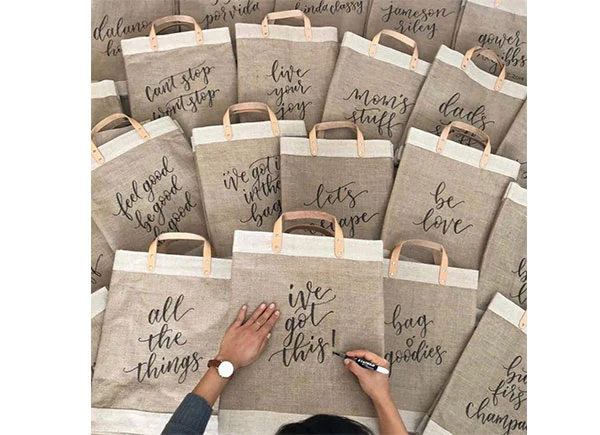 dalano
por vida
linda classy
jameson
riley
gower
gibbs
can't stop
won't stop
live
your
joy
mom's
stuff
dad's
feel good
be good
do good
i've got it
in the
bag
let's
escape
be
love
all
the
things
i've
got
this!
bag
o'
goodies
but
first
champag